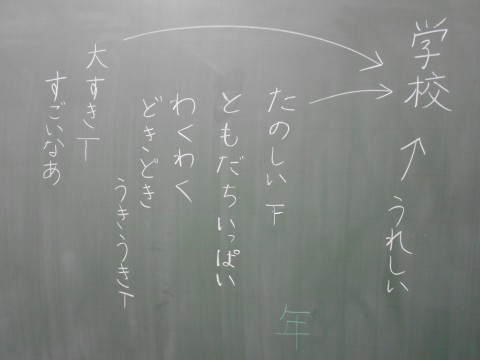 学校
うれしい
たのしい下
ともだちいっぱい
わくわく
どきどき
うきうきT
大すきT
すごいなあ
年